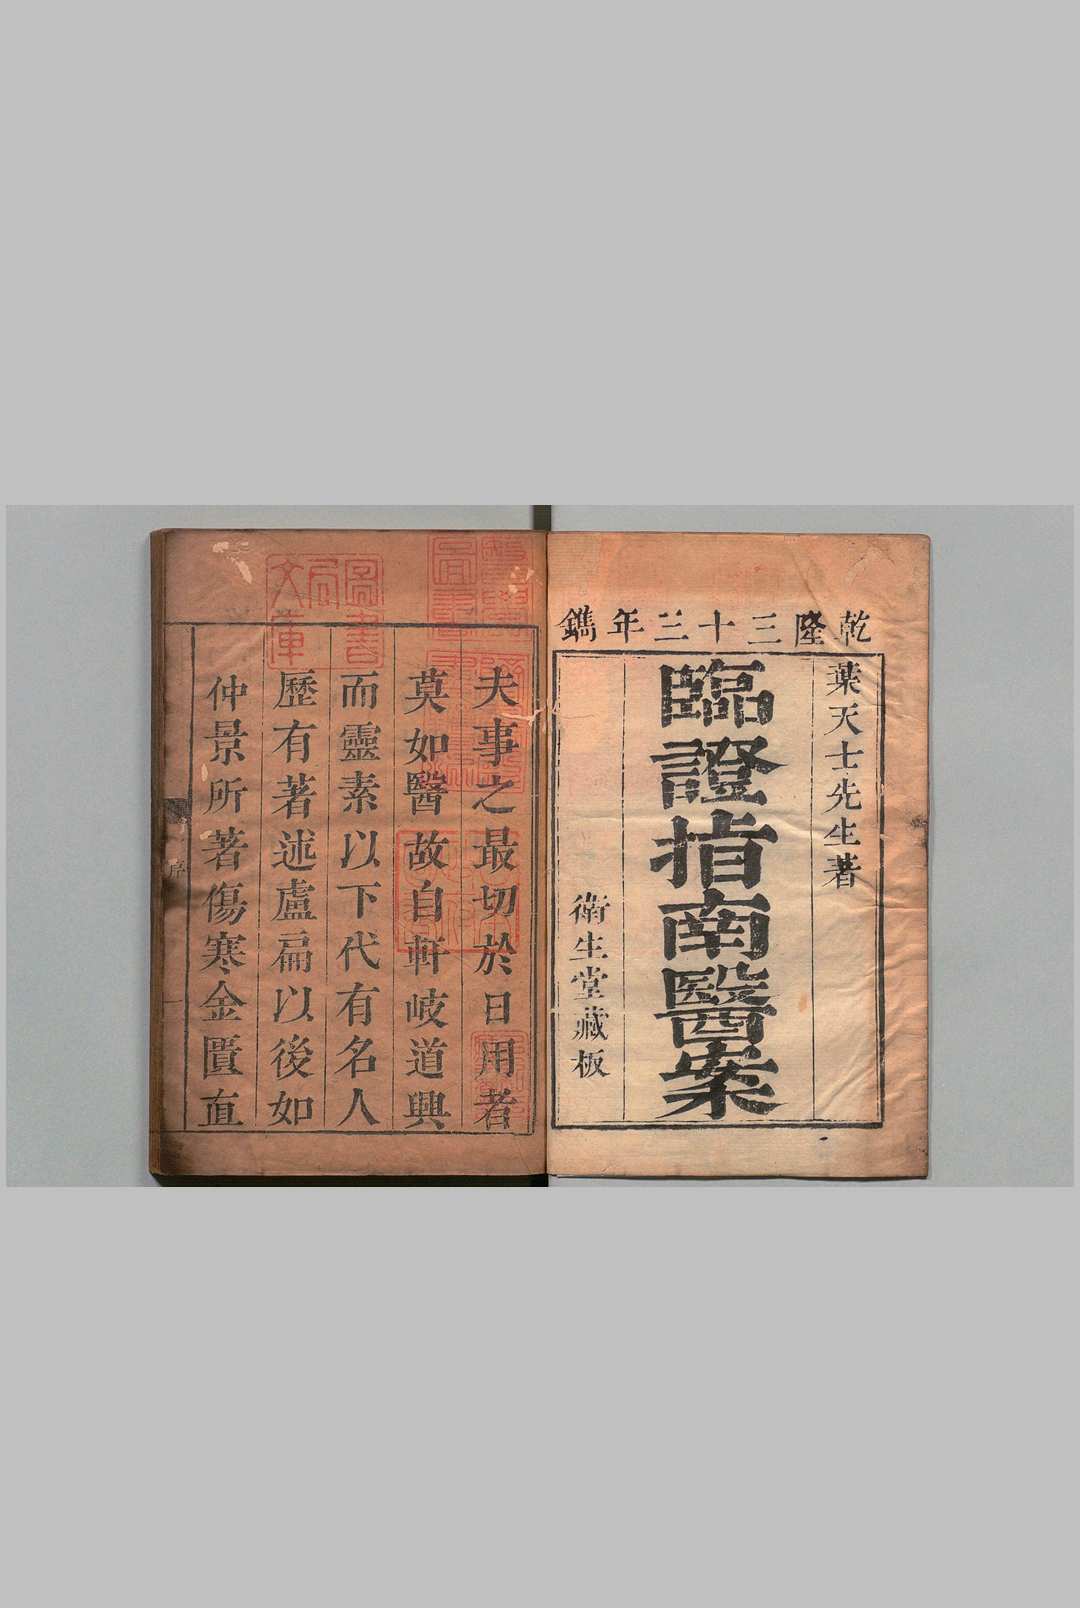 乾隆三十三年鐫
葉天士先生著
臨證指南醫案
衛生堂藏板
夫事之最切於日用者
莫如醫故自軒岐道興
而靈素以下代有名人
歷有著述盧扁以後如
仲景所著傷寒金匱直
序
一
圖書
局
文庫